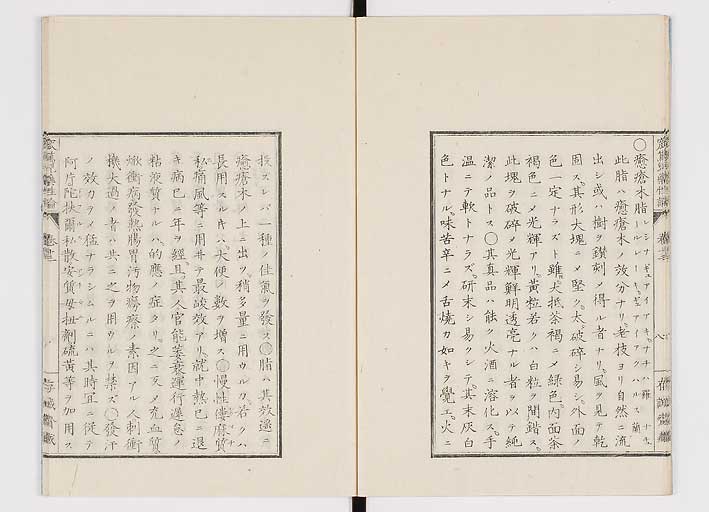 〇癒瘡木脂
此脂ハ癒瘡木ノ效分ナリ老枝ヨリ自然ニ流
出シ或ハ樹ヲ鑚刺ノ得ル者ナリ風ヲ見テ乾
固ス其形大塊ニメ堅ク太破碎シ易シ外面ノ
色一定ナラズト雖大抵茶褐ニメ綠色内面茶
褐色ニメ光輝アリ黄粒若クハ白粒ヲ間錯ス
此塊ヲ破碎メ光輝鮮明透亮ナル者ヲ以テ純
潔ノ品トス〇其真品ハ能ク火酒ニ溶化ス手
温ニテ軟トナラズ研末シ易クシテ其末灰白
色トナル味苦辛ニメ舌燒カ如キヲ覺エ火ニ
投ズレバ一種ノ佳氣ヲ發ス〇脂ハ其效遥ニ
癒瘡木ノ上ニ出ツ稍多量ニ用ウルカ若クハ
長用スルキハ大便ノ數ヲ增ス〇慢性僂麻質
私痛風等ニ用井テ最諼效アリ就中熱已ニ退
キ病已ニ年ヲ經且其人官能萎衰運行遅怠ノ
粘液質ナルハ的應ノ症タリ之ニ反メ充血質
焮衝病發熱腸胃汚物癆瘵ノ素因アル人刺衝
機太過ノ者ハ共ニ之ヲ用ウルヲ禁ズ〇發汗
ノ效力ヲメ猛ナラシムルニハ其時宜ニ從テ
阿片陀扶爾私散安質母扭劑硫黄等ヲ加用ス